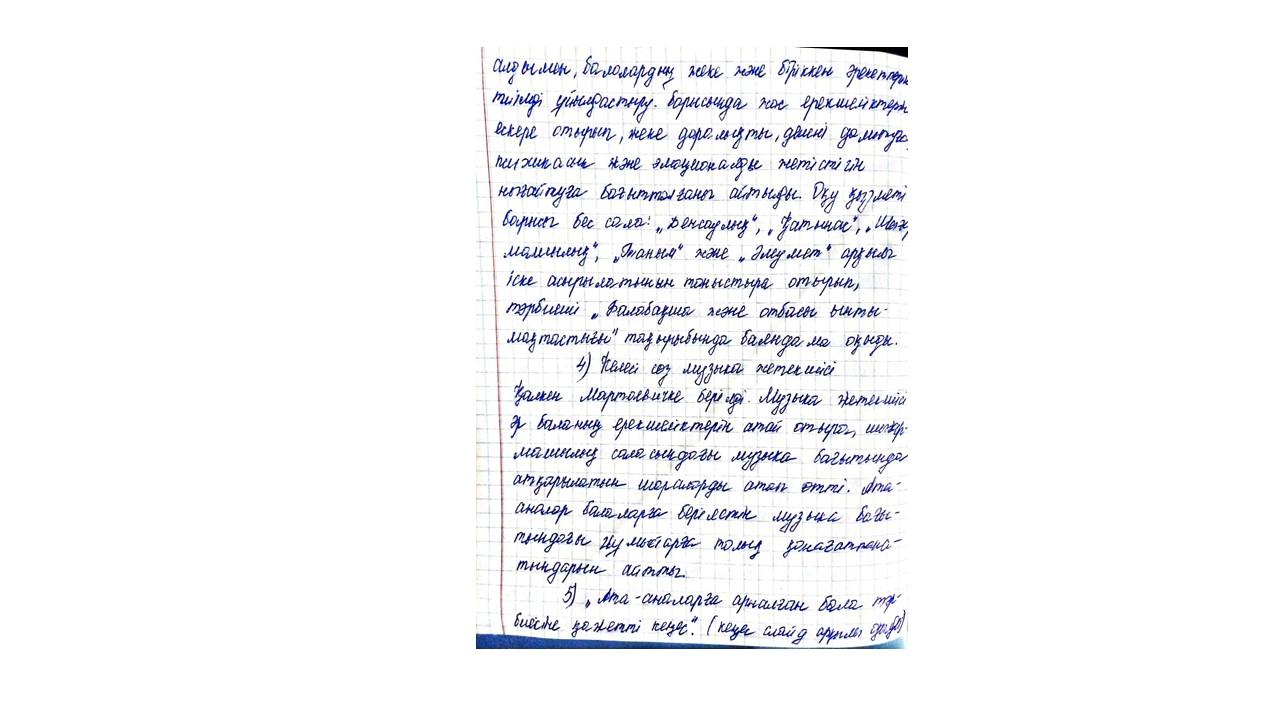 алдымен, балалардың жеке және біріккен әрекеттерін
тиімді ұйымдастыру. барысында жас ерекшеліктерін
ескере отырып, жеке даралықты, денені дамытуға,
психикалық және эмоционалды жетістігін
нығайтуға бағытталғаны айтылды. Оқу қызметі
барысы бес сала: „Денсаулық", „Қатынас", „Шығар
машылық", „Таным" және „Әлеумет" арқылы
іске асырылатынын таныстыра отырып,
тәрбиеші „Балабақша және отбасы ынты-
мақтастығы" тақырыбында баяндама оқыды.
4) Келесі сөз музыка жетекшісі
Мартаевичке берілді. Музыка жетекшісі
әр баланың ерекшеліктерін атай отырып, шығар-
машылық саласындағы музыка бағытында
атқарылатын шараларды атап өтті. Ата-
аналар балаларға берілетін музыка бағы-
тындағы жұмыстарға толық қанағаттана-
тындарын айтты.
5) „Ата-аналарға арналған бала тәр-
биесіне қажетті кеңес". (кеңес слайд арқылы